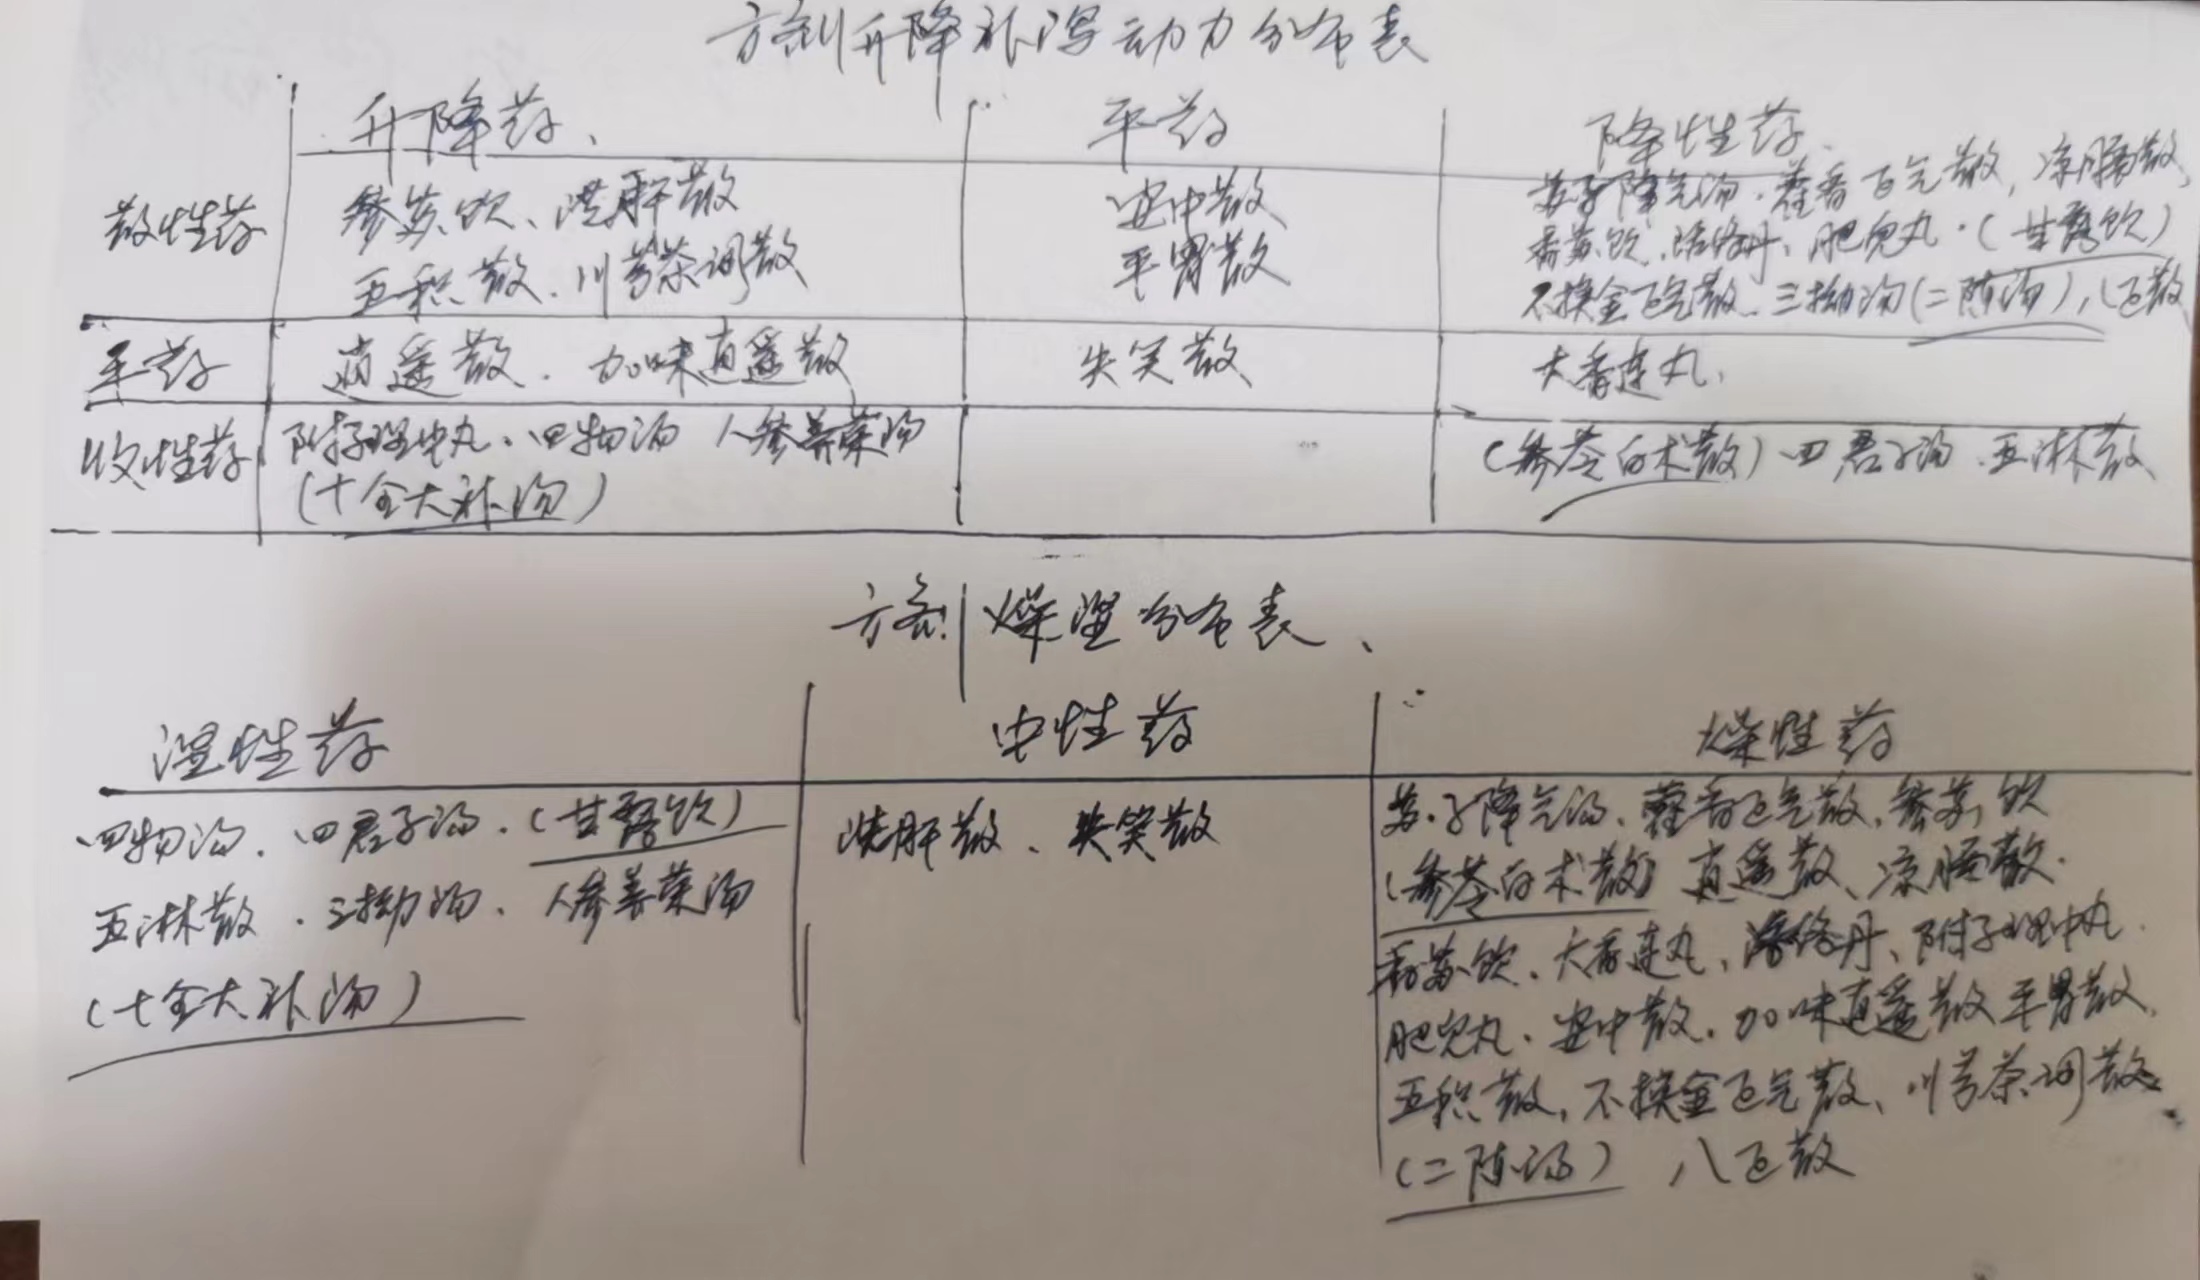 方剂升降补泻动力分布表
升降药、 平药 降性药、
散性药 参苏饮、洗肝散 安中散 苏子降气汤·藿香正气散,凉膈散,
五积散、川芎茶调散 平胃散 香苏饮、活络丹、肥儿丸·(甘露饮)
不换金正气散、三拗汤(二陈汤),八正散
平药 逍遥散、加味逍遥散 失笑散 大香连丸、
收性药 附子理中丸、四物汤 人参养荣汤 (参苓白术散)四君子汤、五淋散
(十全大补汤)
方剂燥湿分布表、
湿性药 中性药 燥性药
四物汤、四君子汤、(甘露饮) 洗肝散、失笑散 苏子降气汤、藿香正气散、参苏饮
(参苓白术散)逍遥散、凉膈散·
五淋散·三拗汤、人参养荣汤
香苏饮、大香连丸、活络丹、附子理中丸·
(十全大补汤)
肥儿丸·安中散、加味逍遥散 平胃散、
五积散,不换金正气散、川芎茶调散、
(二陈汤) 八正散